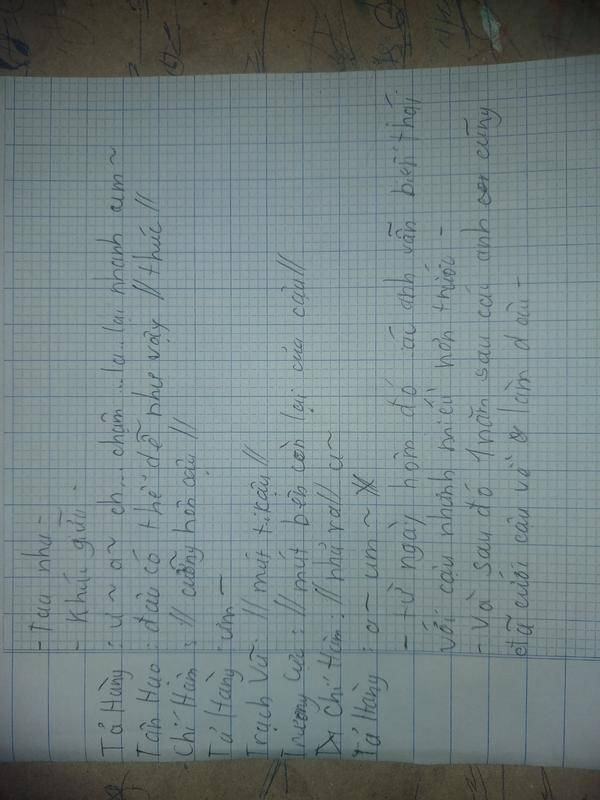 - Tau như -
- Khúc giữa -
Tả Hàng : ư ~ a ~ ch... chậm ... la.. lại nhanh um ~
Tân Hao : đâu có thể dễ như vậy // thúc //
- Chí Hàm : // cưỡng hôn cậu //
Tả Hàng : um ~
Trạch Vũ : // mút ti cậu //
Trương Cực : // mút bên còn lại của cậu //
Chí Hàm : // nhả ra // a ~
Tả Hàng : a ~ um ~
- từ ngày hôm đó các anh vẫn biến thái
với cậu nhưng nhiều hơn trước -
- Và sau đó 1 năm sau các anh cũng
đã cưới cậu về làm dâu -